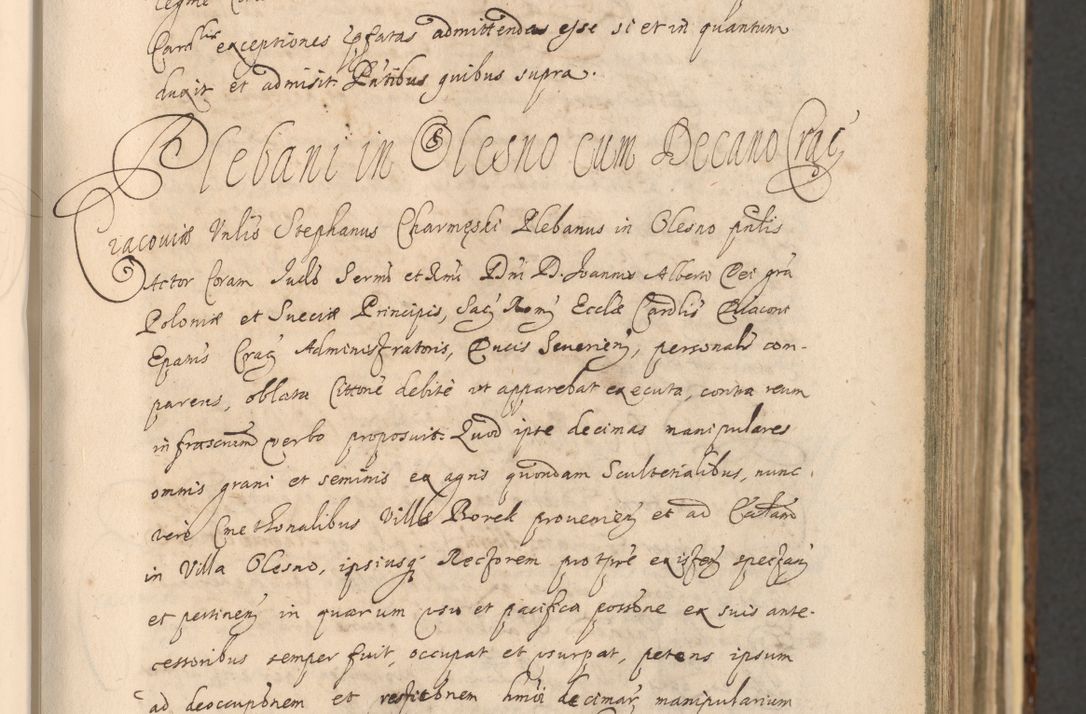 Cardlis exceptiones ipsatas admittendas esse si et in quantum
duxit et admisit. Pntibus quibus supra.
Plebani in Olesno cum Decano Crac
Cracoviæ Vnlis Stephanus Charmęski Plebanus in Olesno pntis
Actor Coram Judo Sermi et Rmi Dni D. Joannis Alberti Dei gra
Poloniæ et Sueciæ Principis, Sac Rom Ecclæ Cardlis Diaconi
Epatus Crac Administratoris, Ducis Severien, personalr com-
parens, oblata Cittone debite ut apparebat executa, contra reum
infrascriptum verbo proposuit. Quod ipse decimas manipulares
omnis grani et seminis ex agris quondam Scultetialibus, nunc
vere Cmethonalibus Villæ Borek provenien et ad
in Villa Olesno, ipsiusq Rectorem pro tpre existen spectan
et pertinen in quarum usu et pacifica possone ex suis ante-
cessoribus semper fuit, occupat et usurpat, petens ipsum
ad deoccuponem et restitonem hmoi decimar manipularium